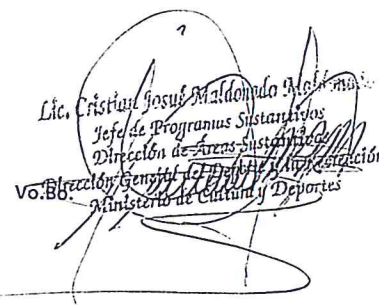 Lic. Cristian Josué Maldonado
Jefe de Programas Sustantivos
Dirección de Áreas Sustantivas
Vo.Bo. Dirección General del Deporte y la Recreación
Ministerio de Cultura y Deportes